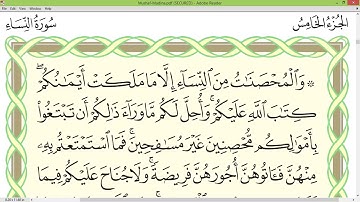 Mushaf-Madina.pdf (SECURED) - Adobe Reader
سُورَةُ النِّسَاءِ
الجُزْءُ الخَامِسُ
۞ وَالْمُحْصَنَاتُ مِنَ النِّسَاءِ إِلَّا مَا مَلَكَتْ أَيْمَانُكُمْ ۖ
كِتَابَ اللَّهِ عَلَيْكُمْ ۚ وَأُحِلَّ لَكُم مَّا وَرَاءَ ذَٰلِكُمْ أَن تَبْتَغُوا
بِأَمْوَالِكُم مُّحْصِنِينَ غَيْرَ مُسَافِحِينَ ۚ فَمَا اسْتَمْتَعْتُم بِهِ
مِنْهُنَّ فَآتُوهُنَّ أُجُورَهُنَّ فَرِيضَةً ۚ وَلَا جُنَاحَ عَلَيْكُمْ فِيمَا